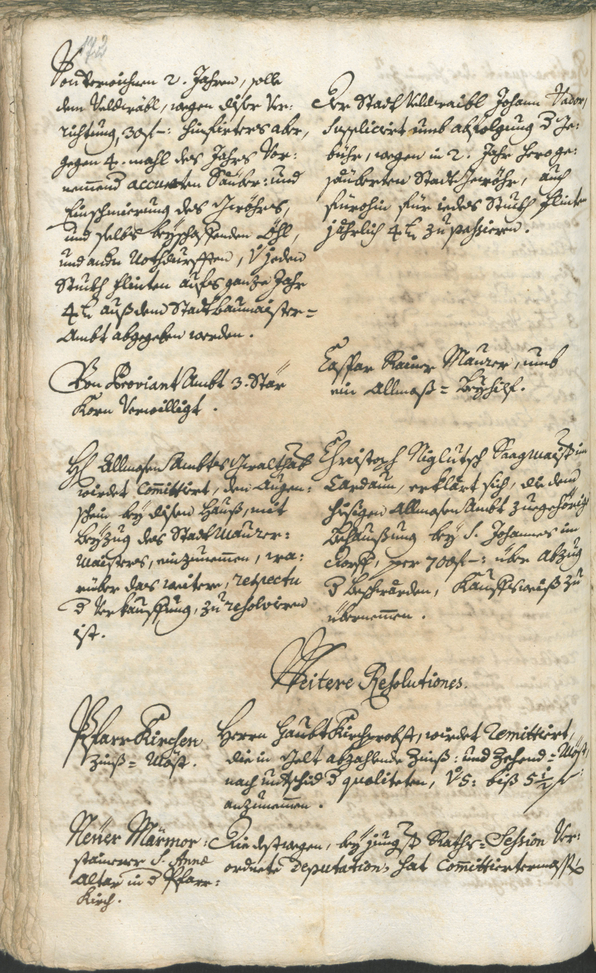 172
Von verwichnen 2. Jahren, solle
dem Veldwäbl, wegen diser Ver-
richtung, 30 f -: hinfüro aber,
gegen 4. mahl des Jahrs Vor-
nemmend accuraten Sauber: und
Einschmierung des Gewöhres,
und selbs beyschaffenden Öhl,
und andn Nothdurfften, jeden
Stuckh flinten aufs ganze Jahr
4 kr. auß dem Statt Baumaister-
Ambt abgegeben werden.
Der Stadt Veldwaibl Johann
Suppliciert umb abfolgung d Ge-
bühr, wegen in 2. Jahr hero ge-
säuberten Stadt Gewöhr, auch
fürohin für iedes Stuckh flinten
jährlich 4 kr. zu passieren.
Von Proviant Ambt 3. Stär
Korn Verwilligt.
Caspar Rainer Maurer, umb
ein Allmoß- Beyhilf.
H. Allmosen Ambts Gwalthab
wirdet Committirt, den Augen-
schein bey disen Hauß, mit
beyzug des Statt Maurer-
Maisters, einzunemmen, wa-
rüber das weitere, respectu
d Verkauffung, zu resolviren
ist.
Christoph Niglutsch Saagmaister in
Cardaun, erklärt sich, die dem
hiesigen Allmosen Ambt zuegehörige
Behaußung bey S. Johannes im
Dorff, per 700 f -: über abzug
d Beschwärden, Kauffsweiß zu
übernemmen.
Weitere Resolutiones.
PfarrKirchen
Zinß- Möst.
Herrn HaubtKirchprobst, wirdet remittirt,
die in Gelt abzahlende Zinß: und Zehend- Möst,
nach untschid d qualiteten, 5: biß 5 1/2 f
anzunemmen.
Neuer Marmor-
stainener S. Anna
Altar in d Pfarr-
Kirch.
Die deswegen, bey jüngst Raths- Session Ver-
ordnete deputation, hat Committirtermassen